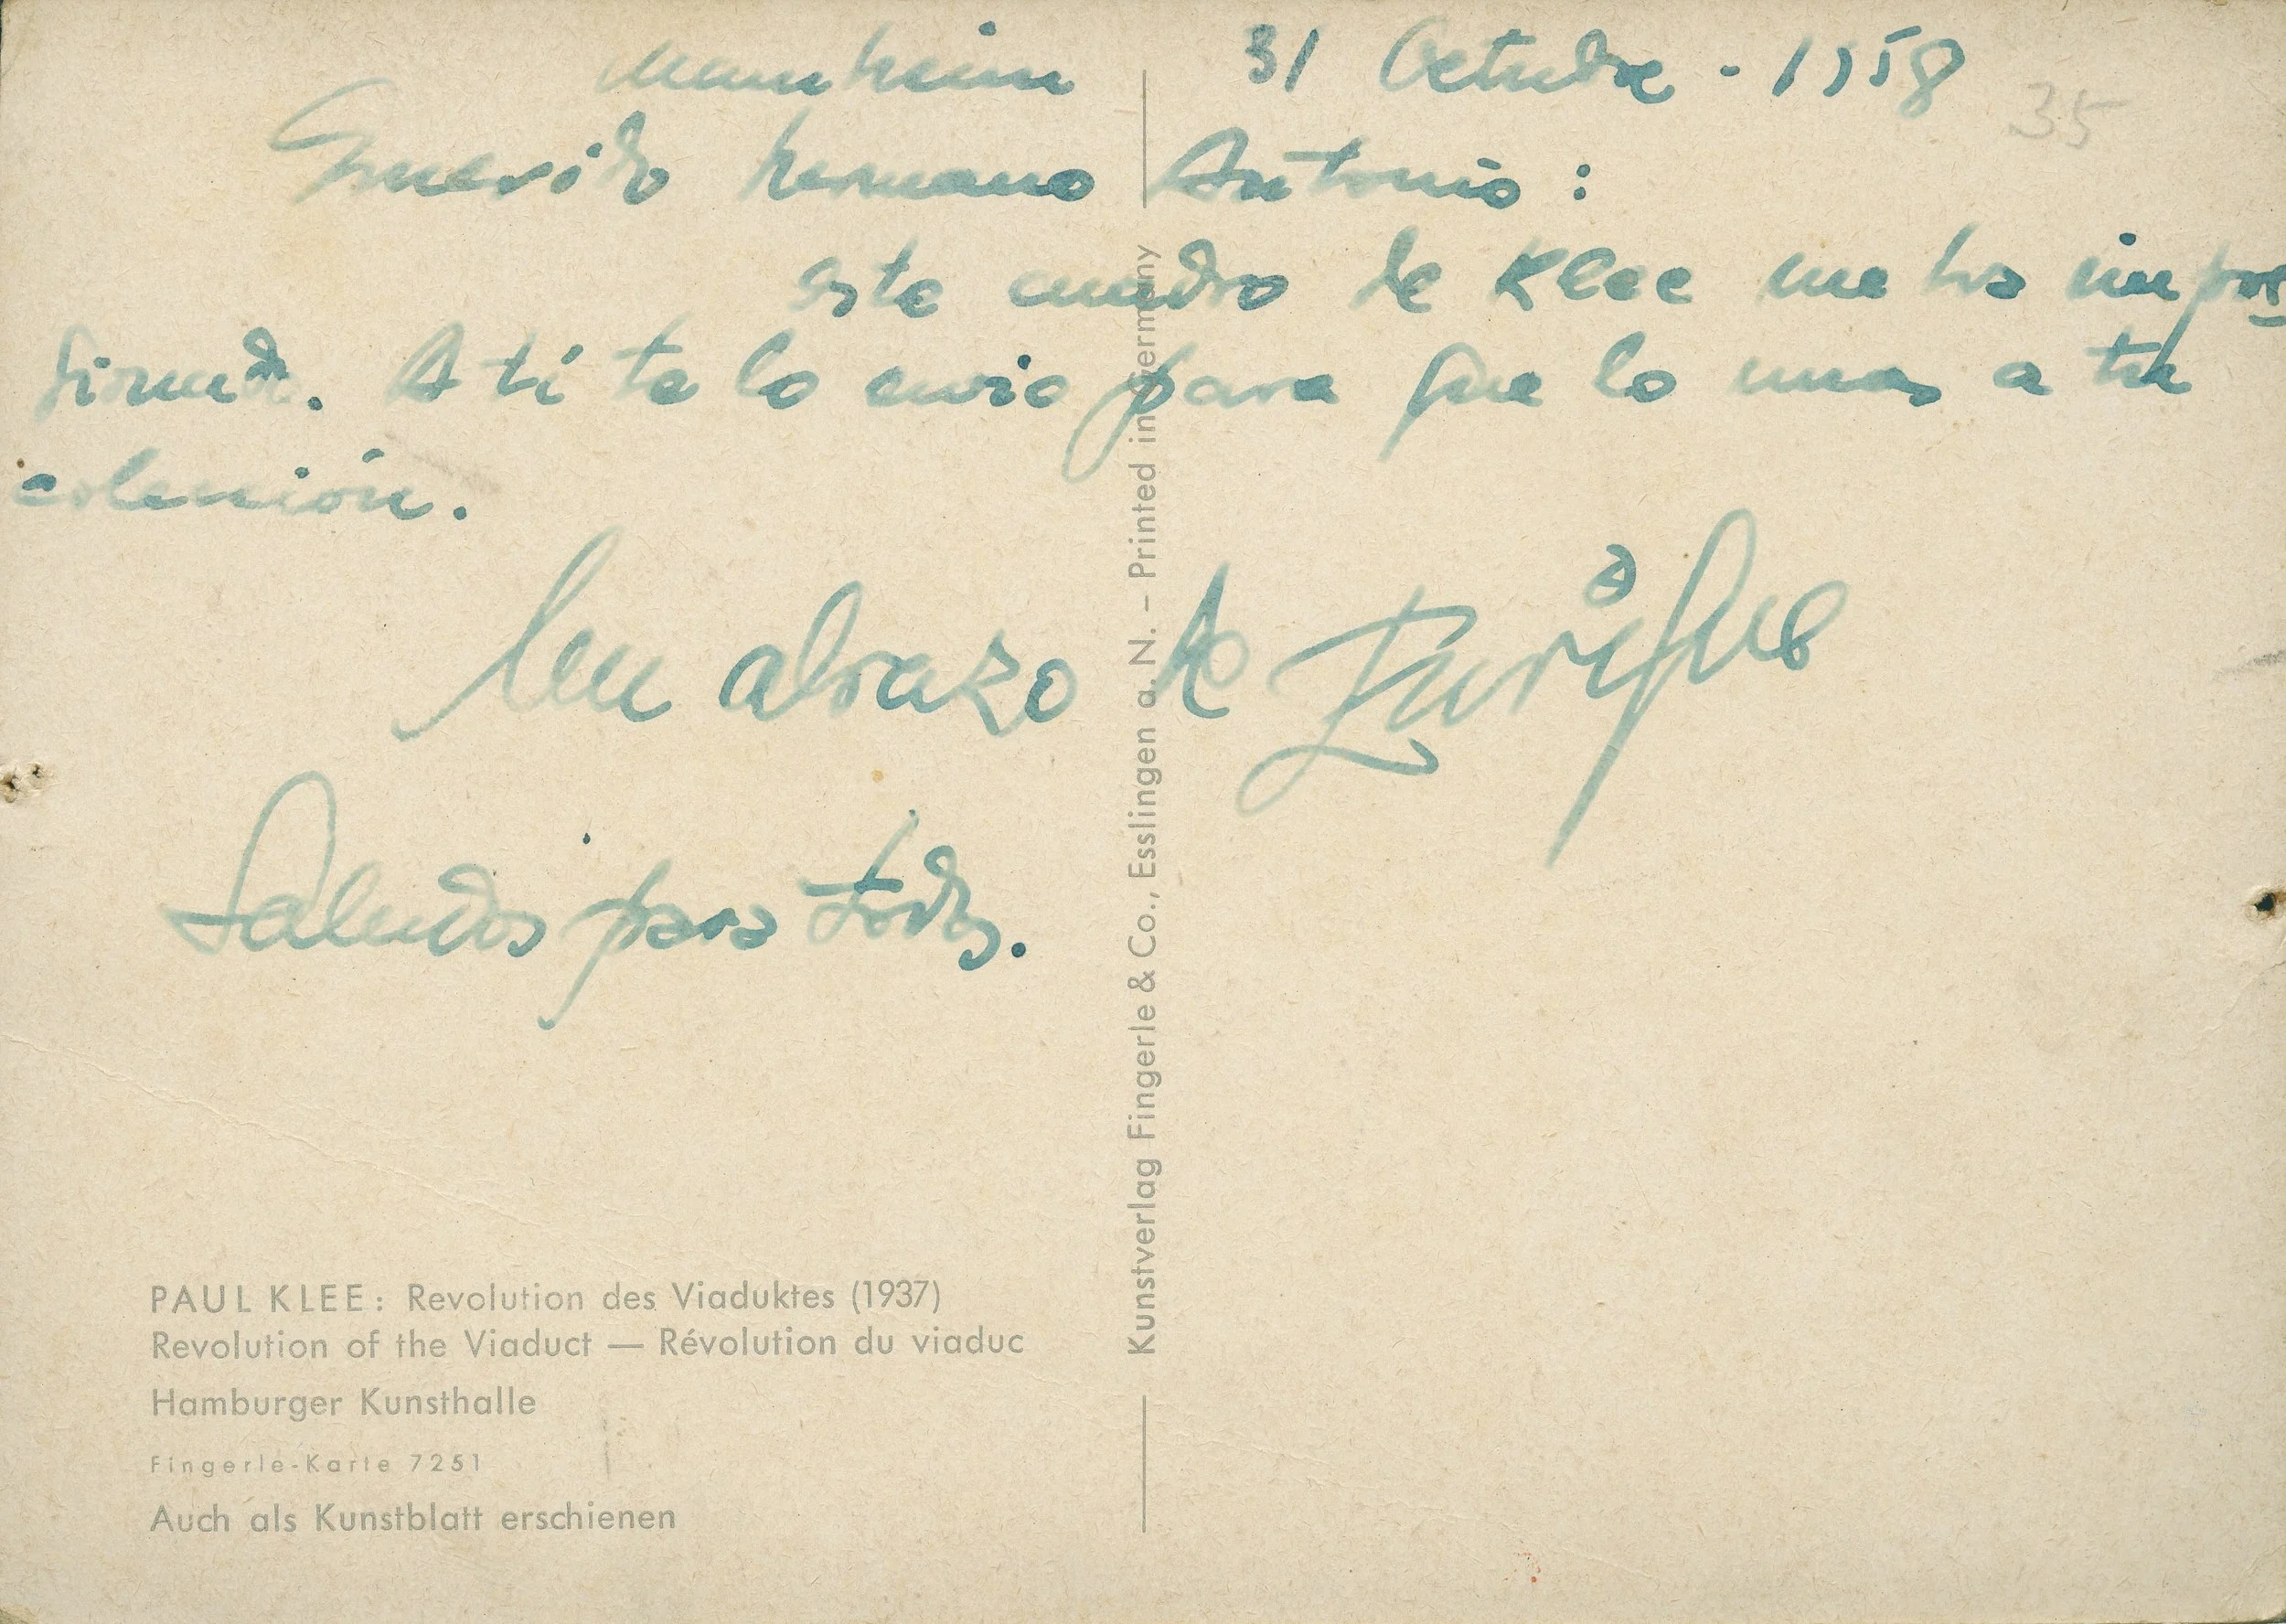 Mannheim 31 Octubre - 1958
35
Querido hermano Antonio:
este cuadro de Klee me ha impre
sionado. A ti te lo envio para que lo unas a tu
colección.
Un abrazo de Enrique
Saludos para todos.
PAUL KLEE: Revolution des Viaduktes (1937)
Revolution of the Viaduct — Révolution du viaduc
Hamburger Kunsthalle
Fingerle-Karte 7251
Auch als Kunstblatt erschienen
Kunstverlag Fingerle & Co., Esslingen a. N. – Printed in Germany